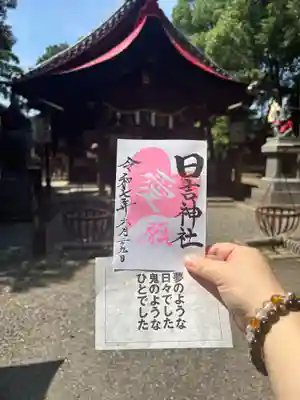 日吉神社
奉拝
令和七年六月二十九日
夢のような
日々でした
鬼のような
ひとでした